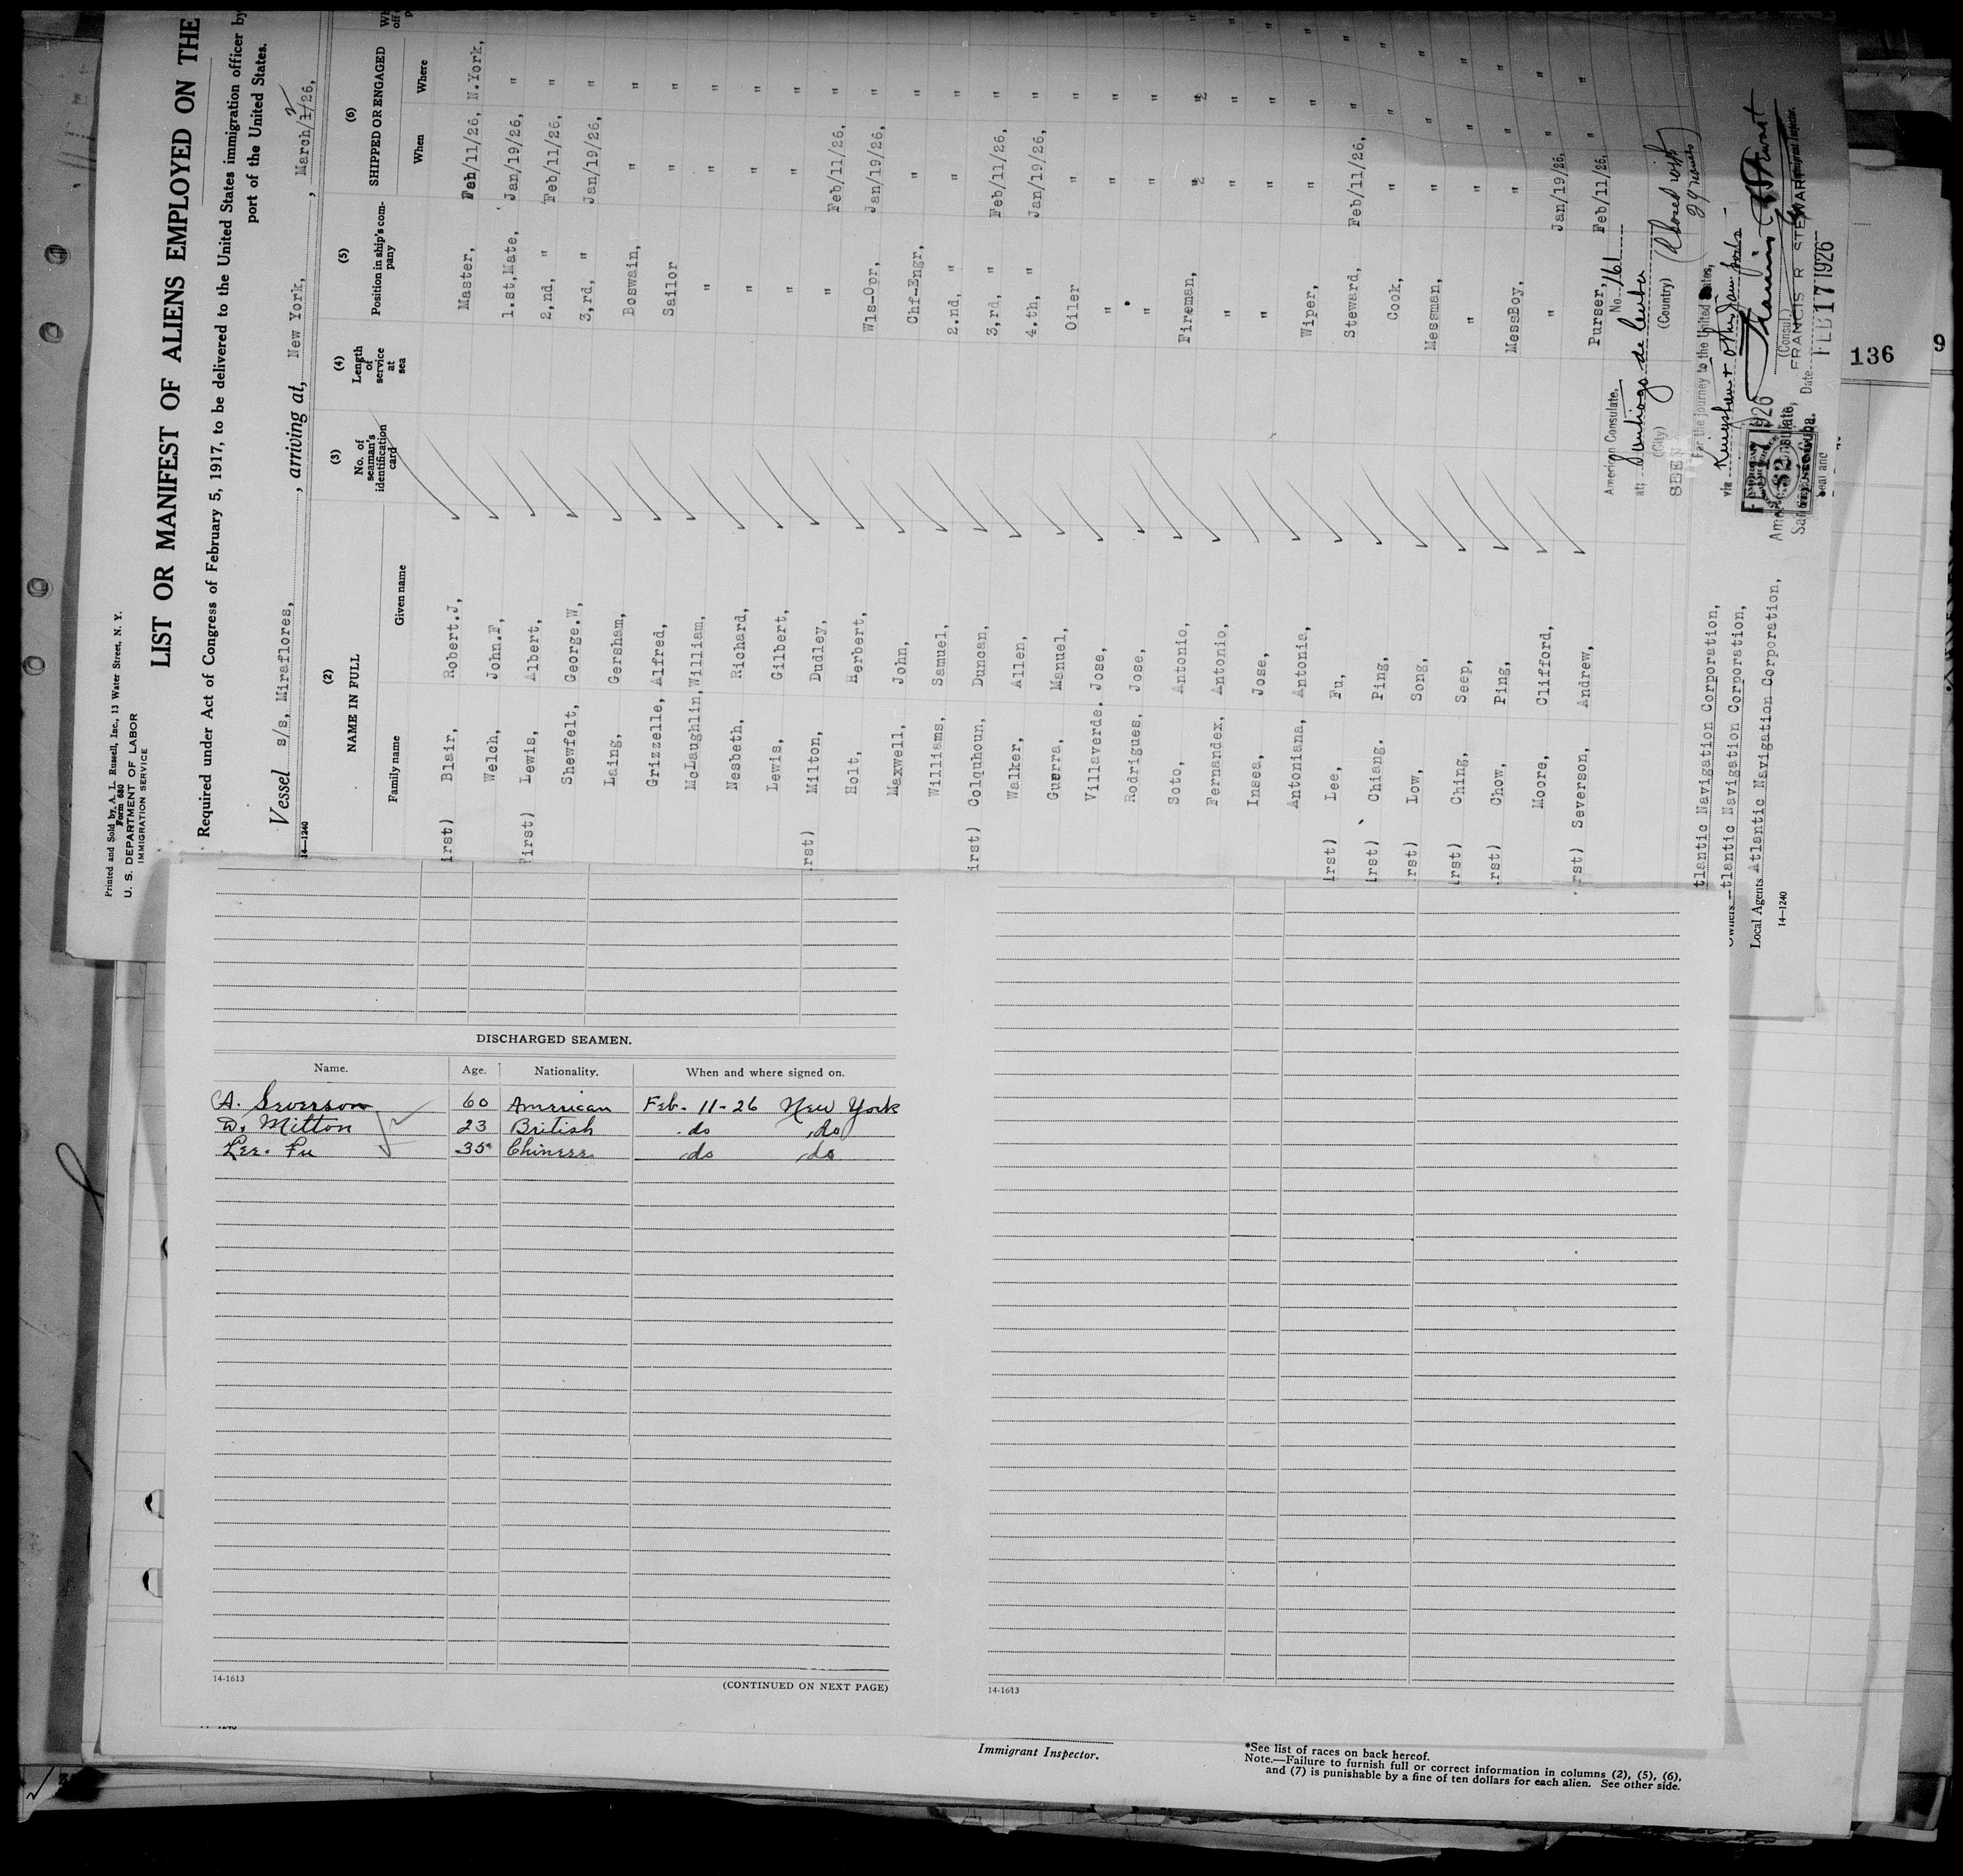 Printed and Sold by A. L. Russell, Inc., 13 Water Street, N. Y.
Form 680
U. S. DEPARTMENT OF LABOR
IMMIGRATION SERVICE
LIST OR MANIFEST OF ALIENS EMPLOYED ON THE
Required under Act of Congress of February 5, 1917, to be delivered to the United States immigration officer by
port of the United States.
Vessel s/s, Miraflores, , arriving at, New York, , March/1/26, 2
14—1240
(2) (3) (4) (5) (6)
NAME IN FULL No. of seaman's identification card Length of service at sea Position in ship's company SHIPPED OR ENGAGED
Family name Given name When Where
irst) Blair, Robert.J, Master, Feb/11/26, N.York,
Welch, John.F, 1.st,Mate, Jan/19/26, "
First) Lewis, Albert, 2,nd, " Feb/11/26, "
Shewfelt, George.W, 3,rd, " Jan/19/26, "
Laing, Gersham, Boswain, " "
Grizzelle, Alfred, Sailor " "
McLaughlin, William, " " "
Nesbeth, Richard, " " "
Lewis, Gilbert, " " "
irst) Milton, Dudley, " Feb/11/26, "
Holt, Herbert, Wls-Opr, Jan/19/26, "
Maxwell, John, Chf-Engr, " "
Williams, Samuel, 2.nd, " " "
irst) Colquhoun, Duncan, 3,rd, " Feb/11/26, "
Walker, Allen, 4.th, " Jan/19/26, "
Guerra, Manuel, Oiler " "
Villaverde, Jose, " " "
Rodrigues, Jose, " " "
Soto, Antonio, Fireman, " "
Fernandex, Antonio, " " "
Insea, Jose, " " "
Antoniana, Antonia, Wiper, " "
irst) Lee, Fu, Steward, Feb/11/26, "
irst) Chiang, Ping, Cook, " "
rst) Low, Song, Messman, " "
irst) Ching, Seep, " " "
irst) Chow, Ping, MessBoy, " "
Moore, Clifford, " Jan/19/26, "
rst) Severson, Andrew, Purser, Feb/11/26, "
American Consulate. No. 161
at: Santiago de Cuba
(City) (Country)
SEEN
For the journey to the United States,
via Kingston
(Consul)
FRANCIS R. STEWART
Date FEB 17 1926
Seal and
tlantic Navigation Corporation,
Owners tlantic Navigation Corporation,
Local Agents Atlantic Navigation Corporation,
14—1240
136
9
DISCHARGED SEAMEN.
Name. Age. Nationality. When and where signed on.
A. Severson 60 American Feb. 11-26 New York
D. Milton 23 British do do
Lee. Fu 35 Chinese do do
14-1613
(CONTINUED ON NEXT PAGE)
14-1613
Immigrant Inspector.
*See list of races on back hereof.
Note.—Failure to furnish full or correct information in columns (2), (5), (6),
and (7) is punishable by a fine of ten dollars for each alien. See other side.